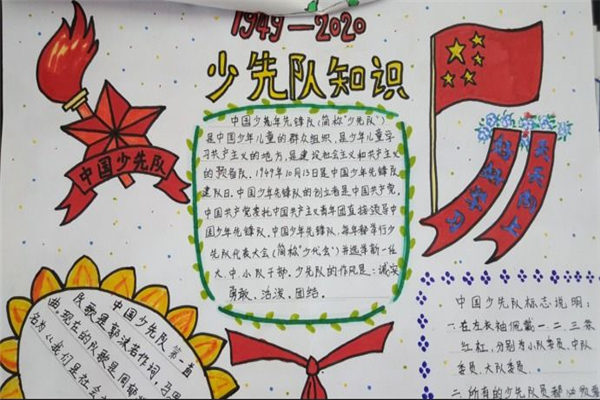 1949—2020
少先队知识
中国少先队
中国少年先锋队(简称"少先队")
是中国少年儿童的群众组织,是少年儿童学
习共产主义的地方,是建设社会主义和共产主义
的预备队。1949年10月13日是中国少年先锋队
建队日。中国少年先锋队的创立者是中国共产党,
中国共产党委托中国共产主义青年团直接领导中
国少年先锋队。中国少年先锋队,每年都举行少
先队代表大会(简称"少代会")并选举新一任
大、中、小队干部。少先队的作风是:诚实、
勇敢、活泼、团结。
好好学习
天天向上
中国少先队第一首
民歌是郭沫若作词,马思
曲,现在的队歌是周郁辉
名为《我们是社会
中国少先队标志说明:
一.在左衣袖佩戴一、二、三条
红杠,分别为小队委员、中队
委员、大队委员.
二.所有的少先队员都必须